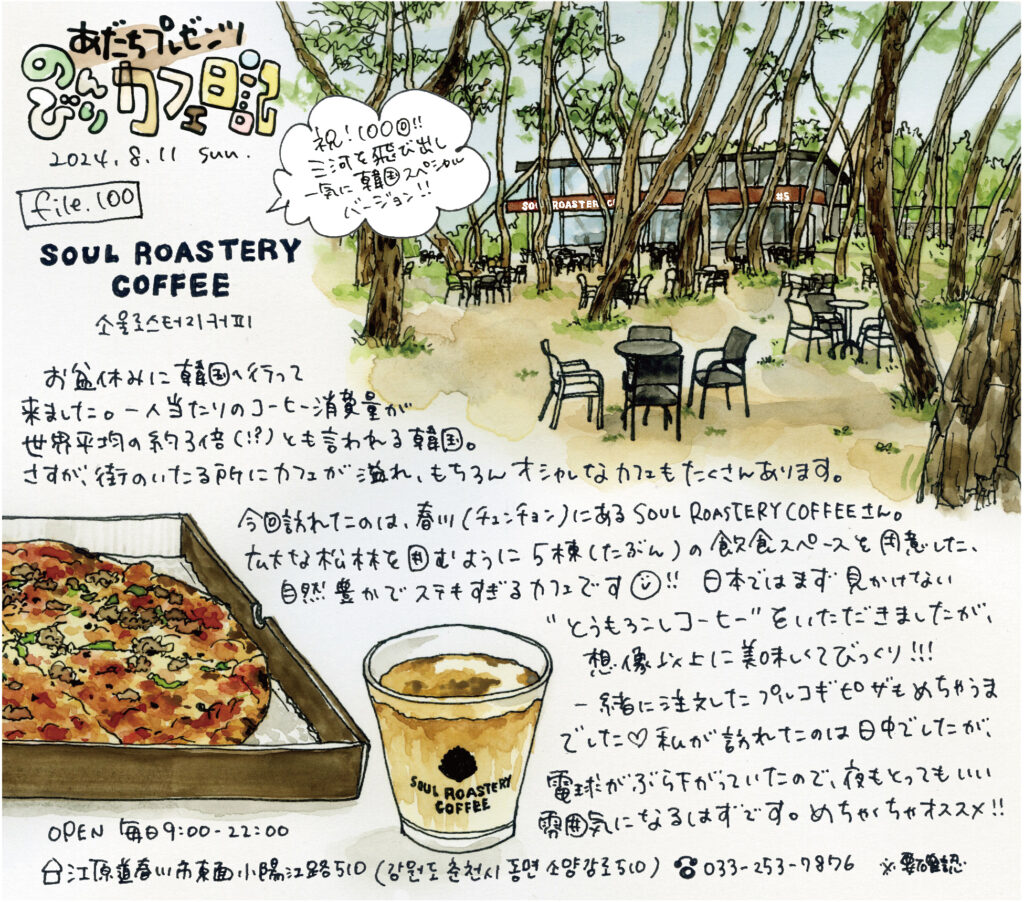 あだちプレゼンツ
のんびりカフェ日記
2024.8.11 sun.
祝!100回!!
三河を飛び出し
一気に韓国スペシャル
バージョン!!
file.100
SOUL ROASTERY
COFFEE
소울로스터리커피
SOUL ROASTERY C
#5
お盆休みに韓国へ行って
来ました。一人当たりのコーヒー消費量が
世界平均の約3倍(!?)とも言われる韓国。
さすが、街のいたる所にカフェが溢れ、もちろんオシャレなカフェもたくさんあります。
今回訪れたのは、春川(チュンチョン)にあるSOUL ROASTERY COFFEEさん。
広大な松林を囲むように5棟(たぶん)の飲食スペースを用意した、
自然豊かでステキすぎるカフェです!! 日本ではまず見かけない
"とうもろこしコーヒー"をいただきましたが、
想像以上に美味しくてびっくり!!!
一緒に注文したプルコギピザもめちゃうま
でした♡私が訪れたのは日中でしたが、
電球がぶら下がっていたので、夜もとってもいい
雰囲気になるはずです。めちゃくちゃオススメ!!
SOUL ROASTERY
COFFEE
OPEN 毎日9:00-22:00
江原道春川市東面小陽江路510(강원도 춘천시 동면 소양강로510) ☎033-253-7876 ※要確認